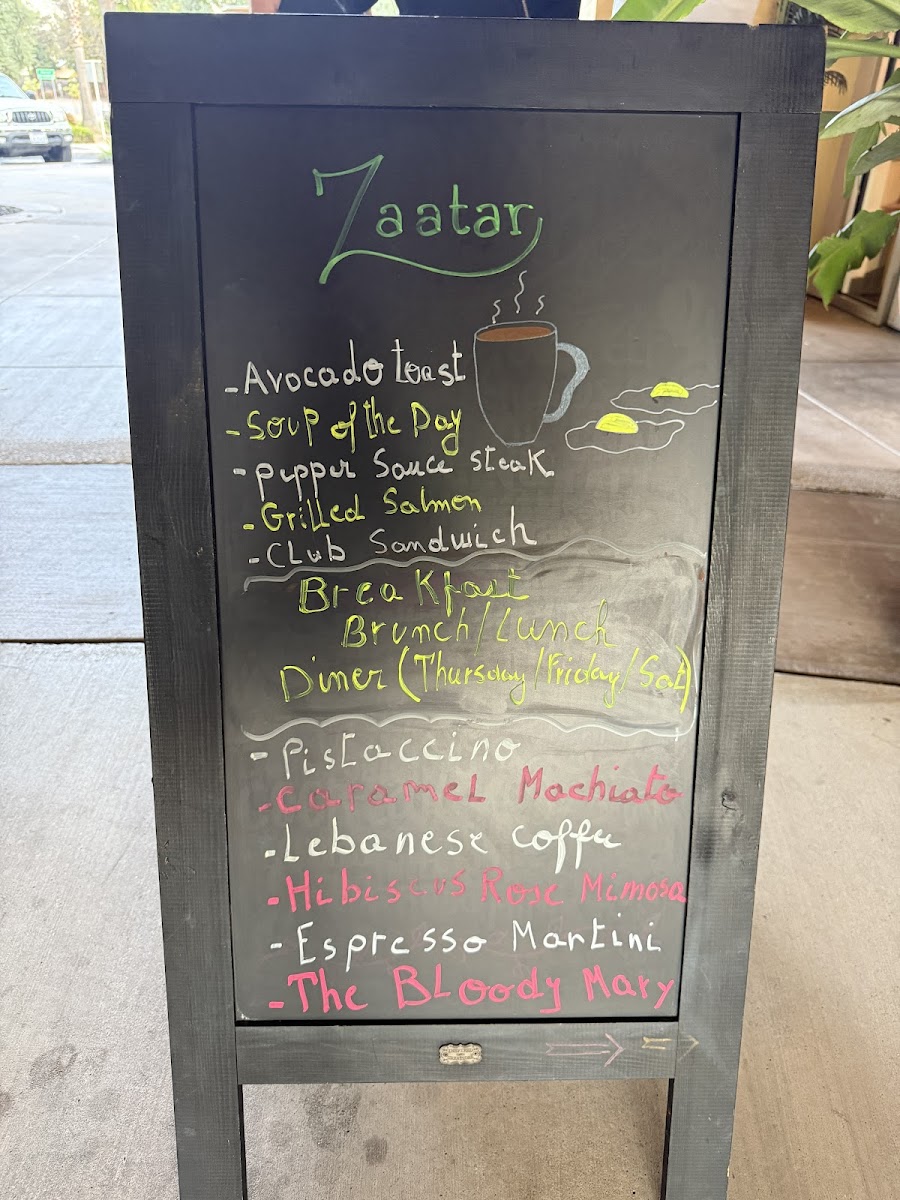 Zaatar
- Avocado toast
- Soup of the Day
- pepper Sauce steak
- Grilled Salmon
- Club Sandwich
Breakfast
Brunch/Lunch
Diner (Thursday/Friday/Sat)
- Pistaccino
- Caramel Machiato
- Lebanese coffee
- Hibiscus Rose Mimosa
- Espresso Martini
- The Bloody Mary